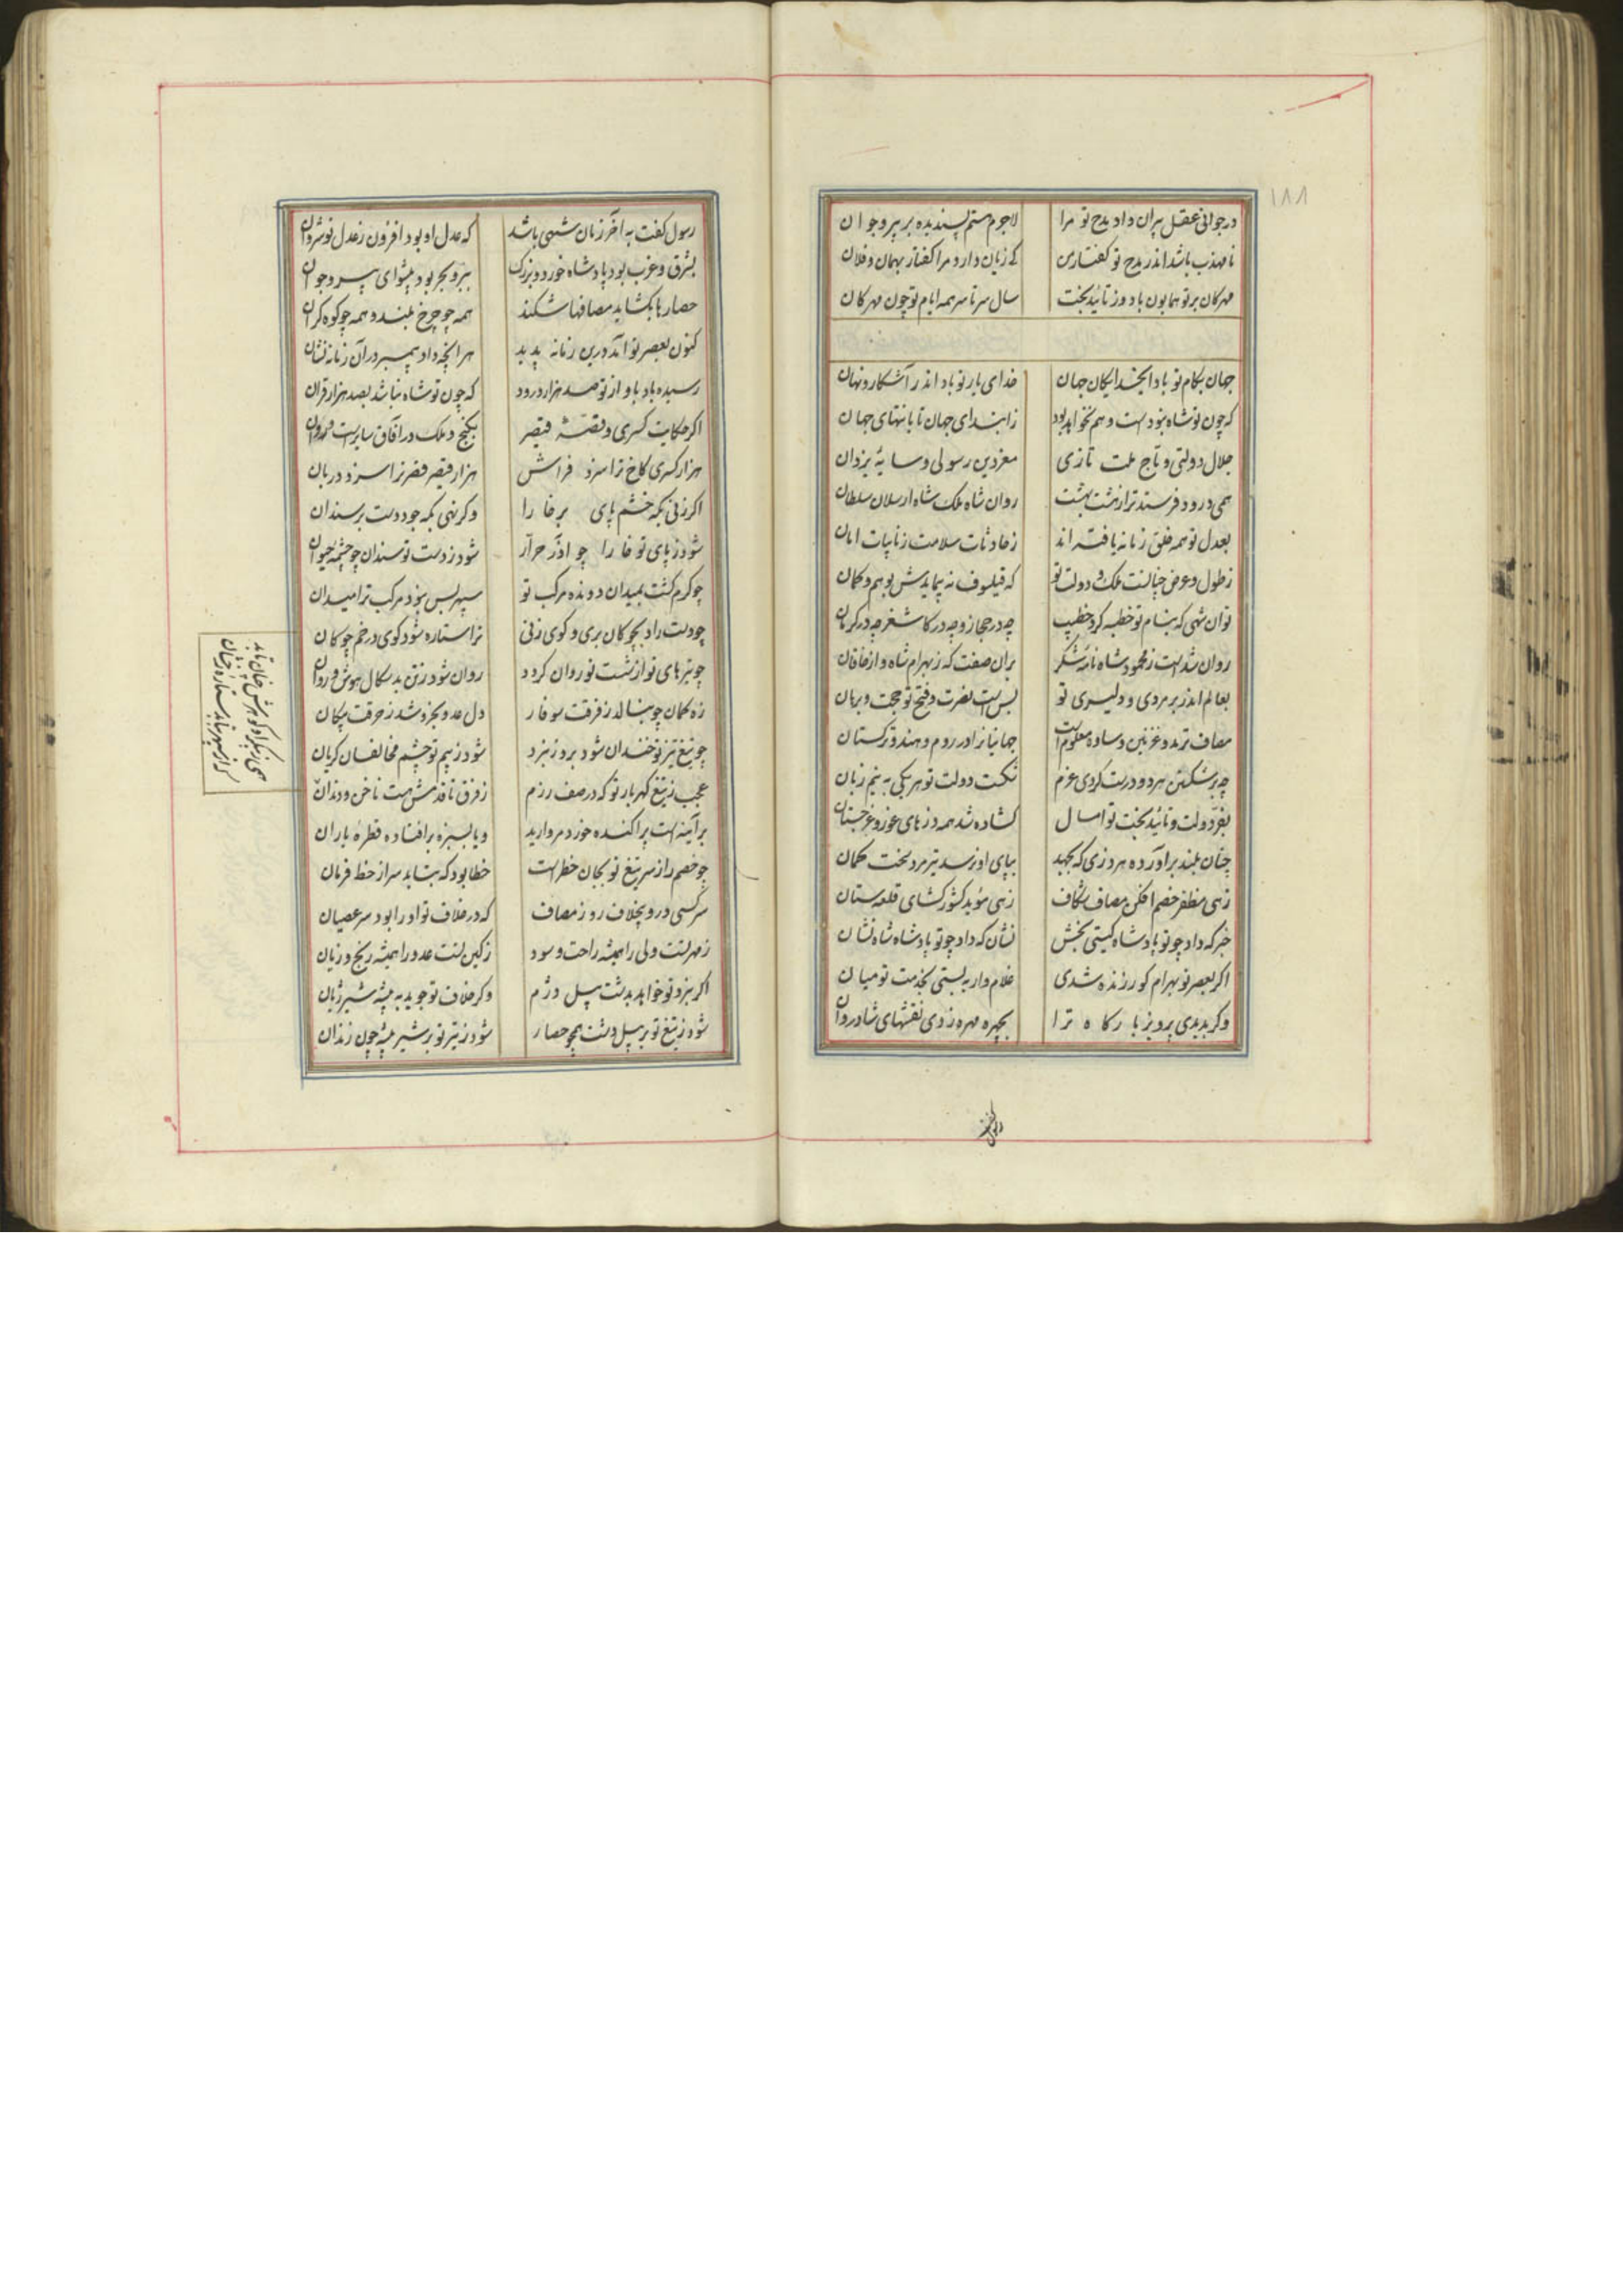 ۱۸۸
در جوانی عقل پیران داد مدح تو مرا لاجرم هستم پسندیده بر پیر و جوان
نامهذب باشد اندر مدح تو گفتار من کی زیان دارد مرا گفتار بهمان و فلان
مهرکان بر تو همایون باد وز تائید بخت سال سر تا سر همه ایام تو چون مهرکان
جهان بکام تو بادا ایخدایکان جهان خدای یار تو باد اندر آشکار و نهان
که چون تو شاه نبودست و هم نخواهد بود ز ابتدای جهان تا بانتهای جهان
جلال دولتی و تاج ملت تازی معز دین رسولی و سایهٔ یزدان
همی درود فرستد ترا ز هشت بهشت روان شاه ملک شاه ارسلان سلطان
بعدل تو همه خلق زمانه یافته اند ز حادثات سلامت ز نایبات امان
ز طول و عرض چنانست ملک و دولت تو که فیلسوف نه پیمایدش بوهم و کمان
تو آن شهی که بنام تو خطبه کرد خطیب چه در حجاز و چه در کاشغر چه در کرمان
روان شدست ز محمود شاه نامهٔ شکر بران صفت که ز بهرام شاه و از خاقان
بعالم اندر بر مردی و دلیری تو بس است نصرت و فتح تو حجت و برهان
مصاف ترمد و غزنین و ساده معلوم است جهانیانرا در روم و هند و ترکستان
چه بر شکستن هر دو درست کردی عزم شکست دولت تو هر یکی به نیم زبان
بفر دولت و تائید بخت تو امسال کشاده شد همه دزهای غور و غرجستان
چنان بلند برآورده هر دزی که بجهد بپای او نرسد تیر مرد سخت کمان
زهی مظفر خصم افکن مصاف شکاف زهی مؤید کشور کشای قلعه ستان
خبر که داد چو تو پادشاه کیتی بخش نشان که داد چو تو پادشاه شاه نشان
اکر بعصر تو بهرام کور زنده شدی غلام وار به بستی بخدمت تو میان
وکر بدیدی پرویز بارکاه ترا بچهره مهره زدی نقشهای شادروان
رسول گفت
رسول کفت به آخر زمان شهی باشد که عدل او بود افزون ز عدل نوشروان
بشرق و غرب بود پادشاه خورد و بزرک ببر و بحر بود پیشوای پیر و جوان
حصارها بکشاید مصافها شکند همه چو چرخ بلند و همه چو کوه کران
کنون بعصر تو آمد درین زمانه پدید هر انچه داد پیمبر در آن زمانه نشان
رسیده باد باو از تو صد هزار درود که چون تو شاه نباشد بصد هزار قران
اکر حکایت کسری و قصهٔ قیصر بکنج و ملک در آفاق سایرست و روان
هزار کسری کاخ ترا سزد فراش هزار قیصر قصر ترا سزد دربان
اکر زنی بکه خشم پای بر خارا وکر نهی بکه جود دست بر سندان
شود ز پای تو خارا چو آذر حراز شود ز دست تو سندان چو چشمهٔ حیوان
چو کرم کشت بمیدان دونده مرکب تو سپهر بس نبود مرکب ترا میدان
چو دست را د بچوکان بری و کوی زنی ترا ستاره شود کوی در خم چوکان
چو تیرهای تو از شست تو روان کردد روان شود ز تن بدسکال هوش و روان
زه کمان چو بنالد ز فرقت سوفار دل عدو بخروشد ز حرقت پیکان
چو تیغ تیز تو خندان شود بروز نبرد شود ز بیم تو چشم مخالفان کریان
عجب ز تیغ کهربار تو که در صف رزم ز فرق تا قدمش هست ناخن و دندان
بر آینه است پراکنده خورد مروارید و یا بسبزه برافتاده قطرهٔ باران
چو خصم را ز سر تیغ تو بجان خطر است خطا بود که بتابد سر از خط فرمان
سر کسی درود بخلاف روز مصاف که در خلاف تو او را بود سر عصیان
ز مهر تست ولی را همیشه راحت و سود ز کین تست عدو را همیشه رنج و زیان
اکر نبرد تو خواهد بدشت پیل دژم وکر خلاف تو جوید به بیشه شیر ژیان
شود ز تیغ تو بر پیل دشت همچو حصار شود ز تیر تو بر شیر بیشه چون زندان